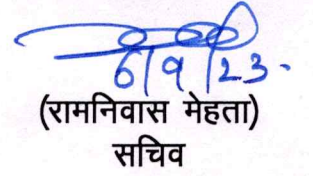 6/9/23.
(रामनिवास मेहता)
सचिव